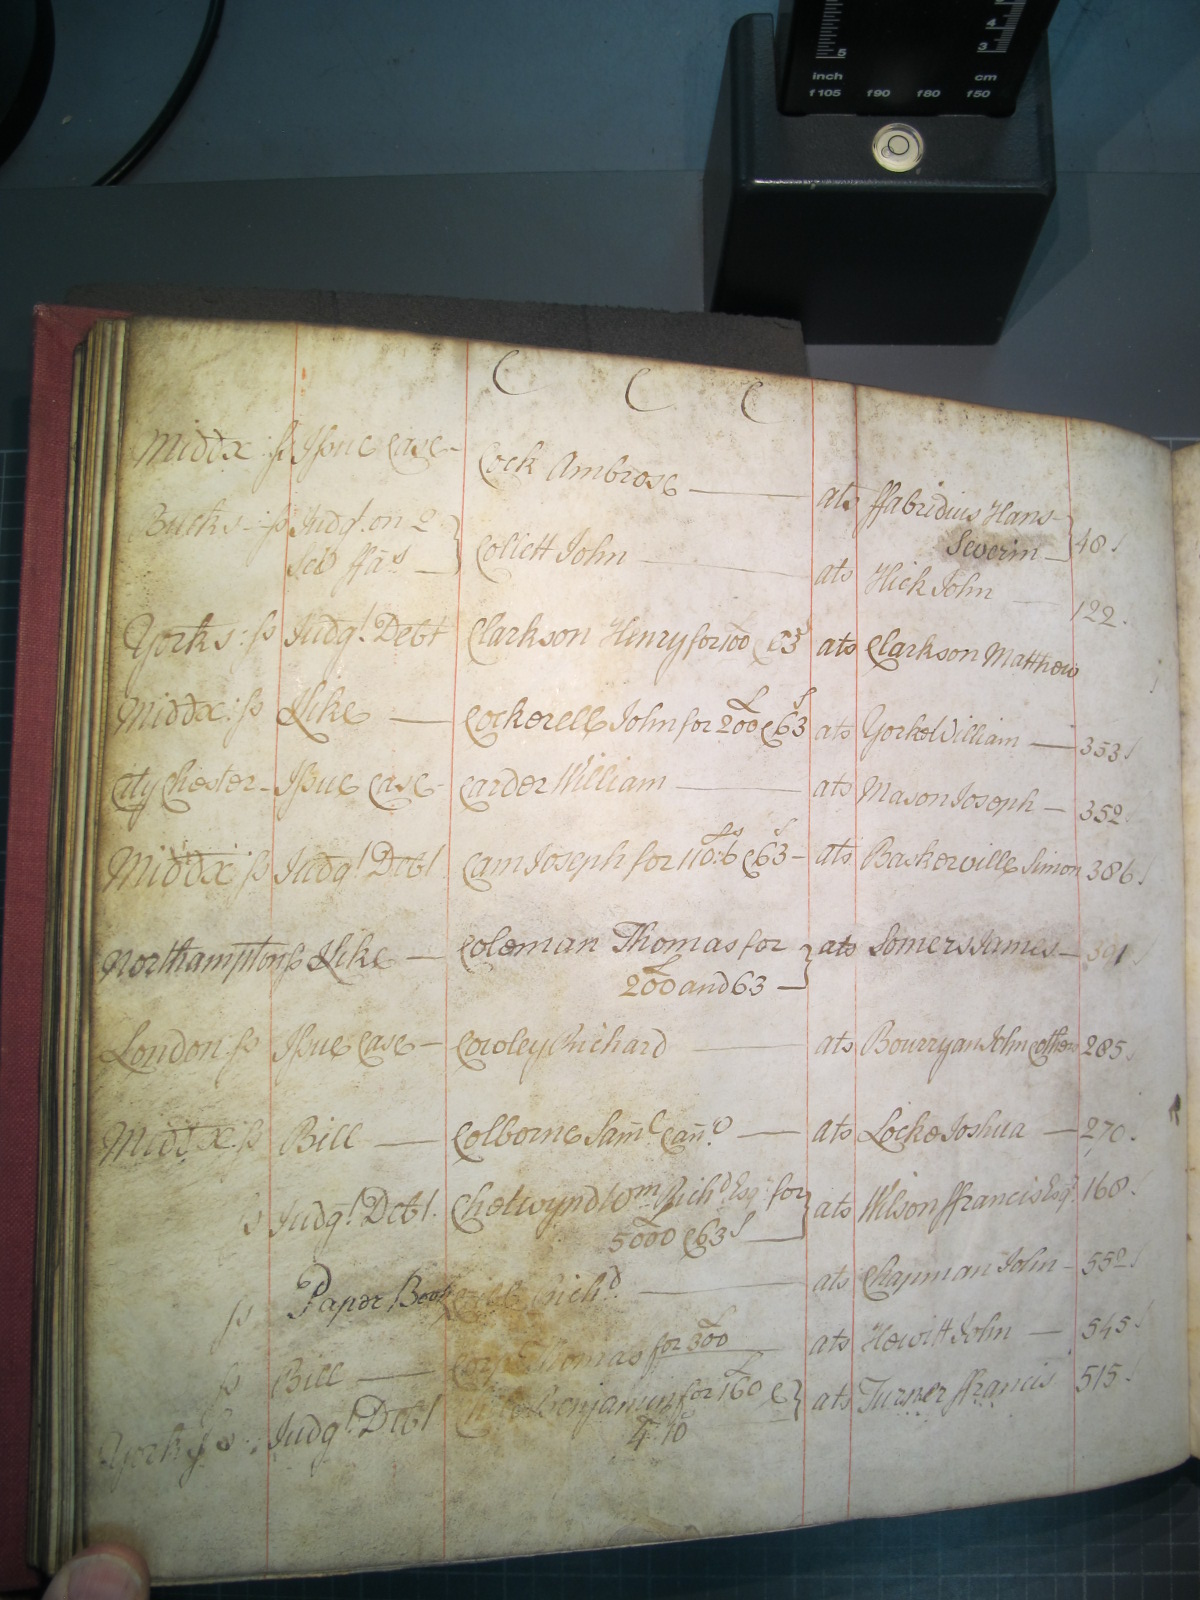 5 4 3
inch cm
f105 f90 f80 f50
C C C
Middx : ss Issue Case - Cock Ambrose ats ffabridius Hans
Severin 48
Bucks - ss Judgt. on 2 Collett John ats Hick John 122
Sci ffas
Yorks : ss Judgt. Debt Clarkson Henry for 100 & 63s ats Clarkson Matthew
Middx : ss Like Cockerell John for 200L & 63s ats Yorke William 353
City Chester - Issue Case - Carder William ats Mason Joseph - 352
Middx ss Judgt Debt Cam Joseph for 110L:6s & 63s - ats Baskerville Simon 386
Northampton ss Like - Coleman Thomas for ats Somers James - 391
200L and 63 -
London : ss Issue Case - Cowley Richard ats Bourryan John & others 285
Middx : ss Bill Colborne Saml Canc ats Locke Joshua - 270
ss Judgt. Debt. Chetwynd Wm Richd Esqr for ats Wilson ffrancis Esqr 168
5000L & 63s
ss Paper Book Richd. ats Chapman John - 552
ss Bill Thomas for 300L ats Hewitt John - 545
York ss : Judgt Debt Benjamin for 160L & ats Turner ffrancis 515
4 : 10